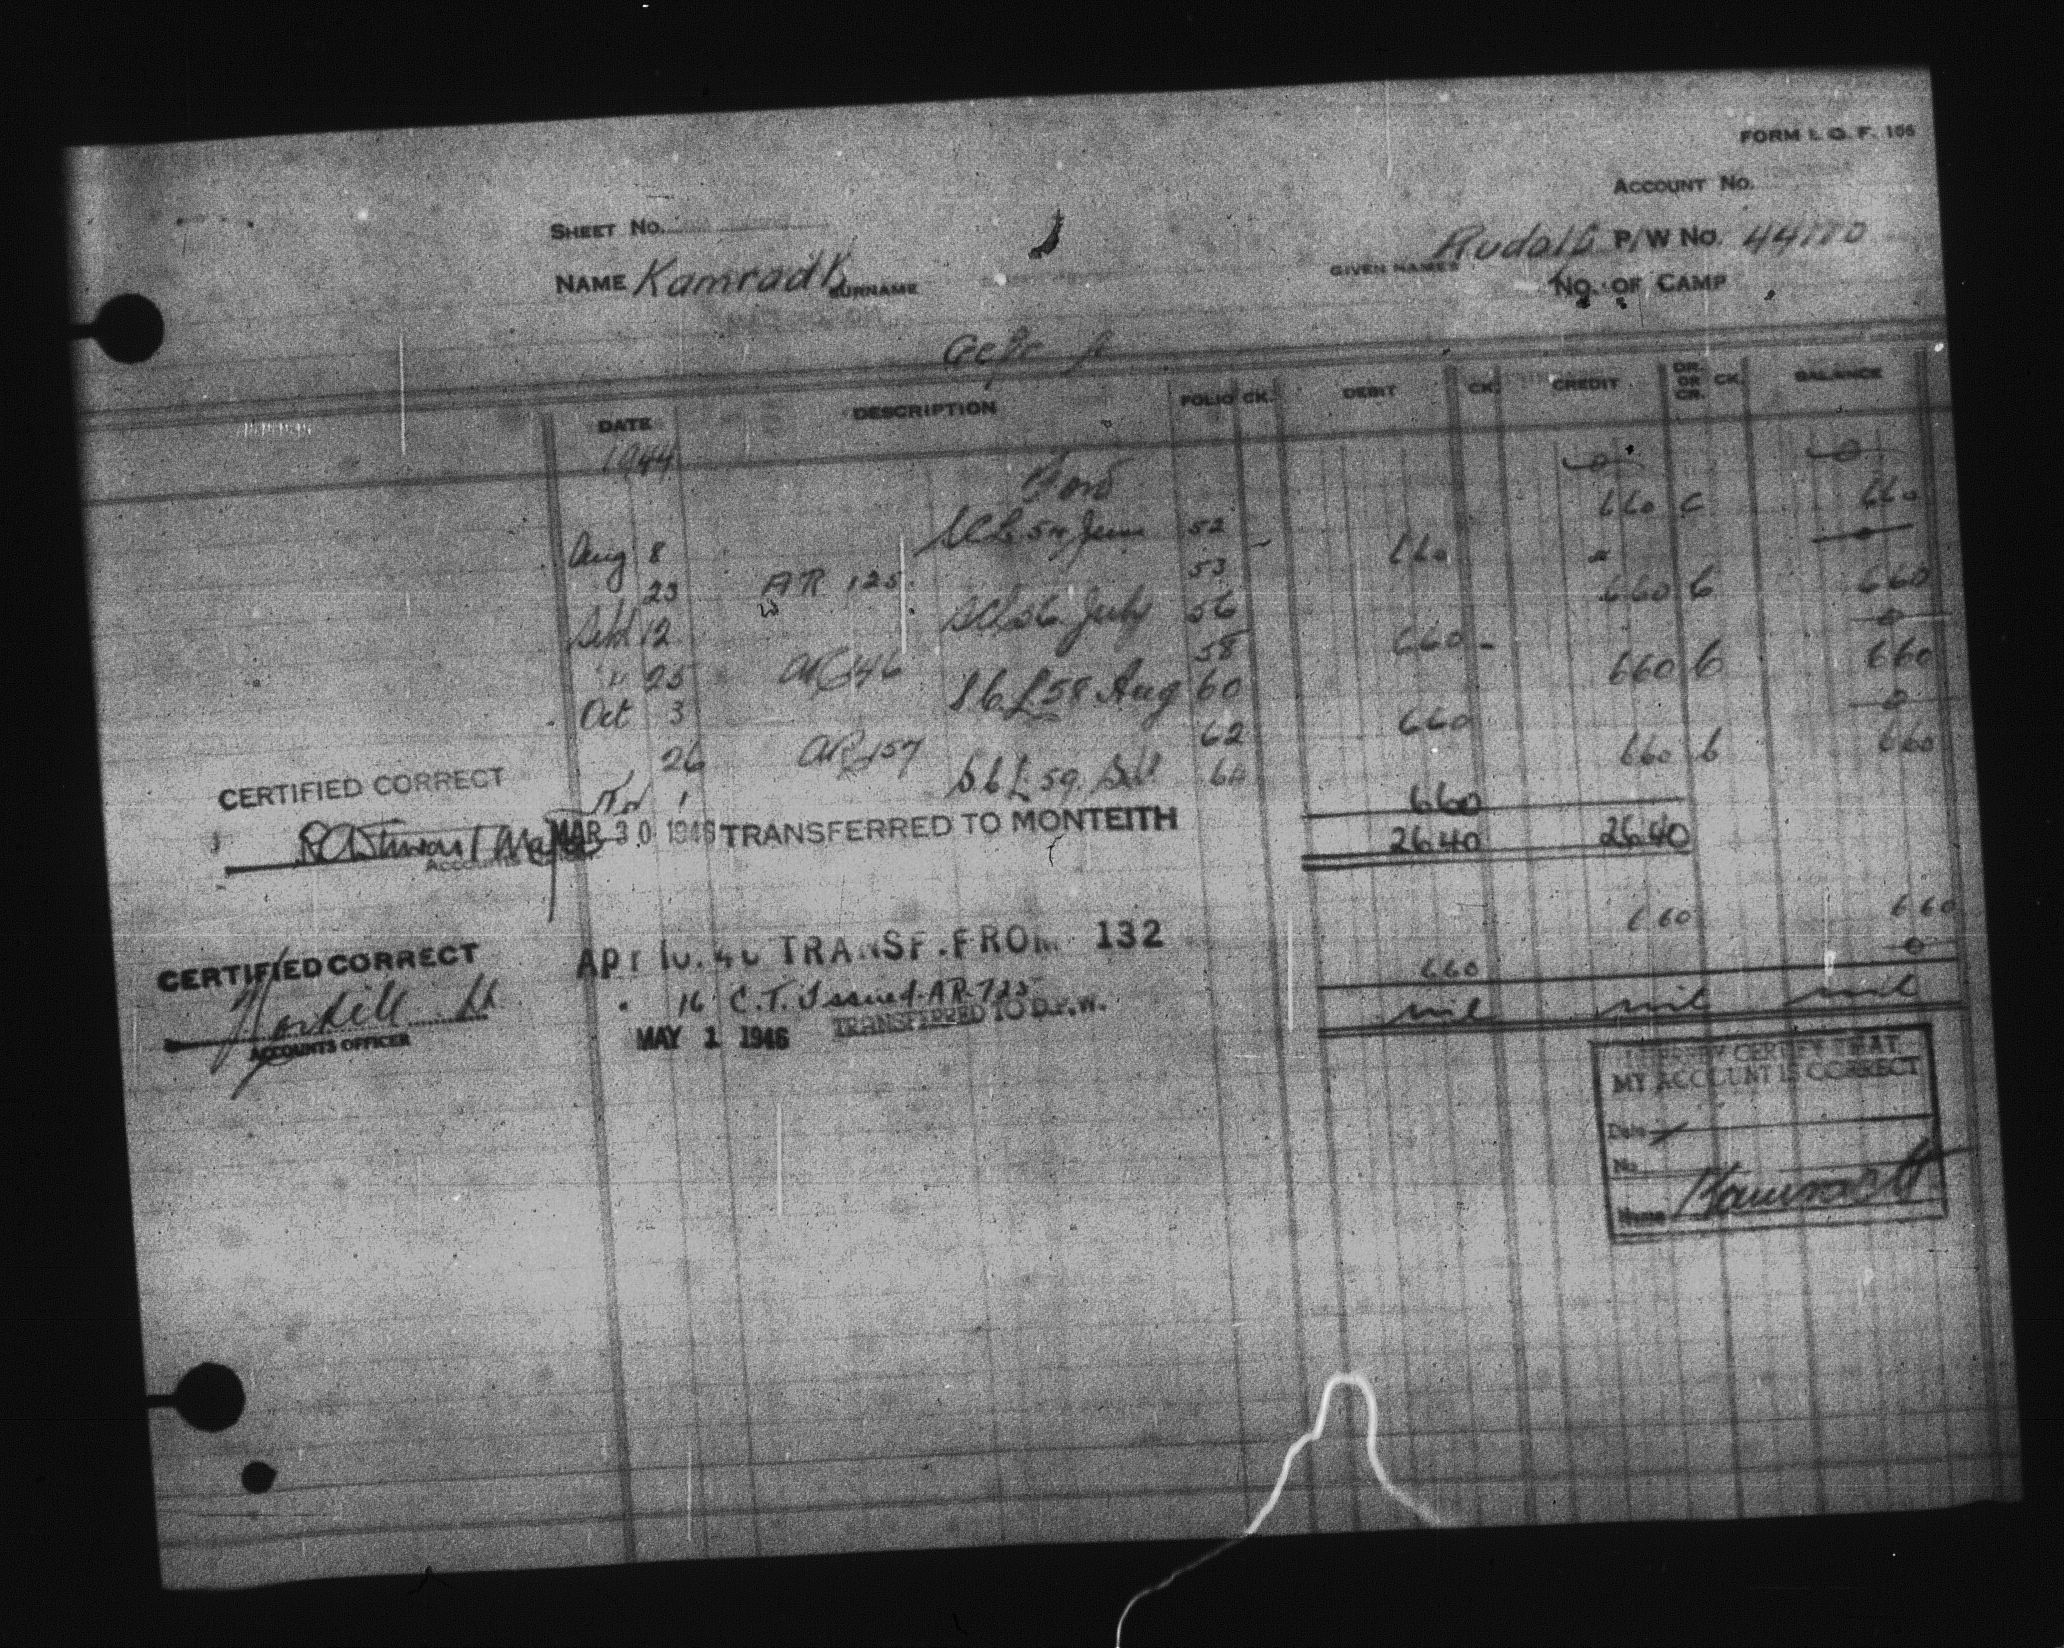 FORM I. O. F. 106
ACCOUNT No.
SHEET No.
NAME Kamradt SURNAME GIVEN NAMES Rudolf P/W No.
No. OF CAMP
Gefr
DATE DESCRIPTION FOLIO CK. DEBIT CK. CREDIT DR. OR CR. CK. BALANCE
1944 Forw 0 0
Aug 8 June 52 660 C 660
23 AR 125 53 660 0
Sept 12 July 56 660 C 660
" 25 AR 146 58 660 0
Oct 3 SCL 58 Aug 60 660 C 660
26 AR 157 62 660 0
Nov 1 SCL 59 64 660 C 660
660
CERTIFIED CORRECT
MAR 30 1946 TRANSFERRED TO MONTEITH 2640 2640
Apr 10.46 TRANSF. FROM 132 660 660
CERTIFIED CORRECT
16 C.T. Issued AR 725 660 0
ACCOUNTS OFFICER
MAY 1 1946 TRANSFERRED TO D.P.W. nil nil nil
I HEREBY CERTIFY THAT
MY ACCOUNT IS CORRECT
Date
No.
Name Kamradt